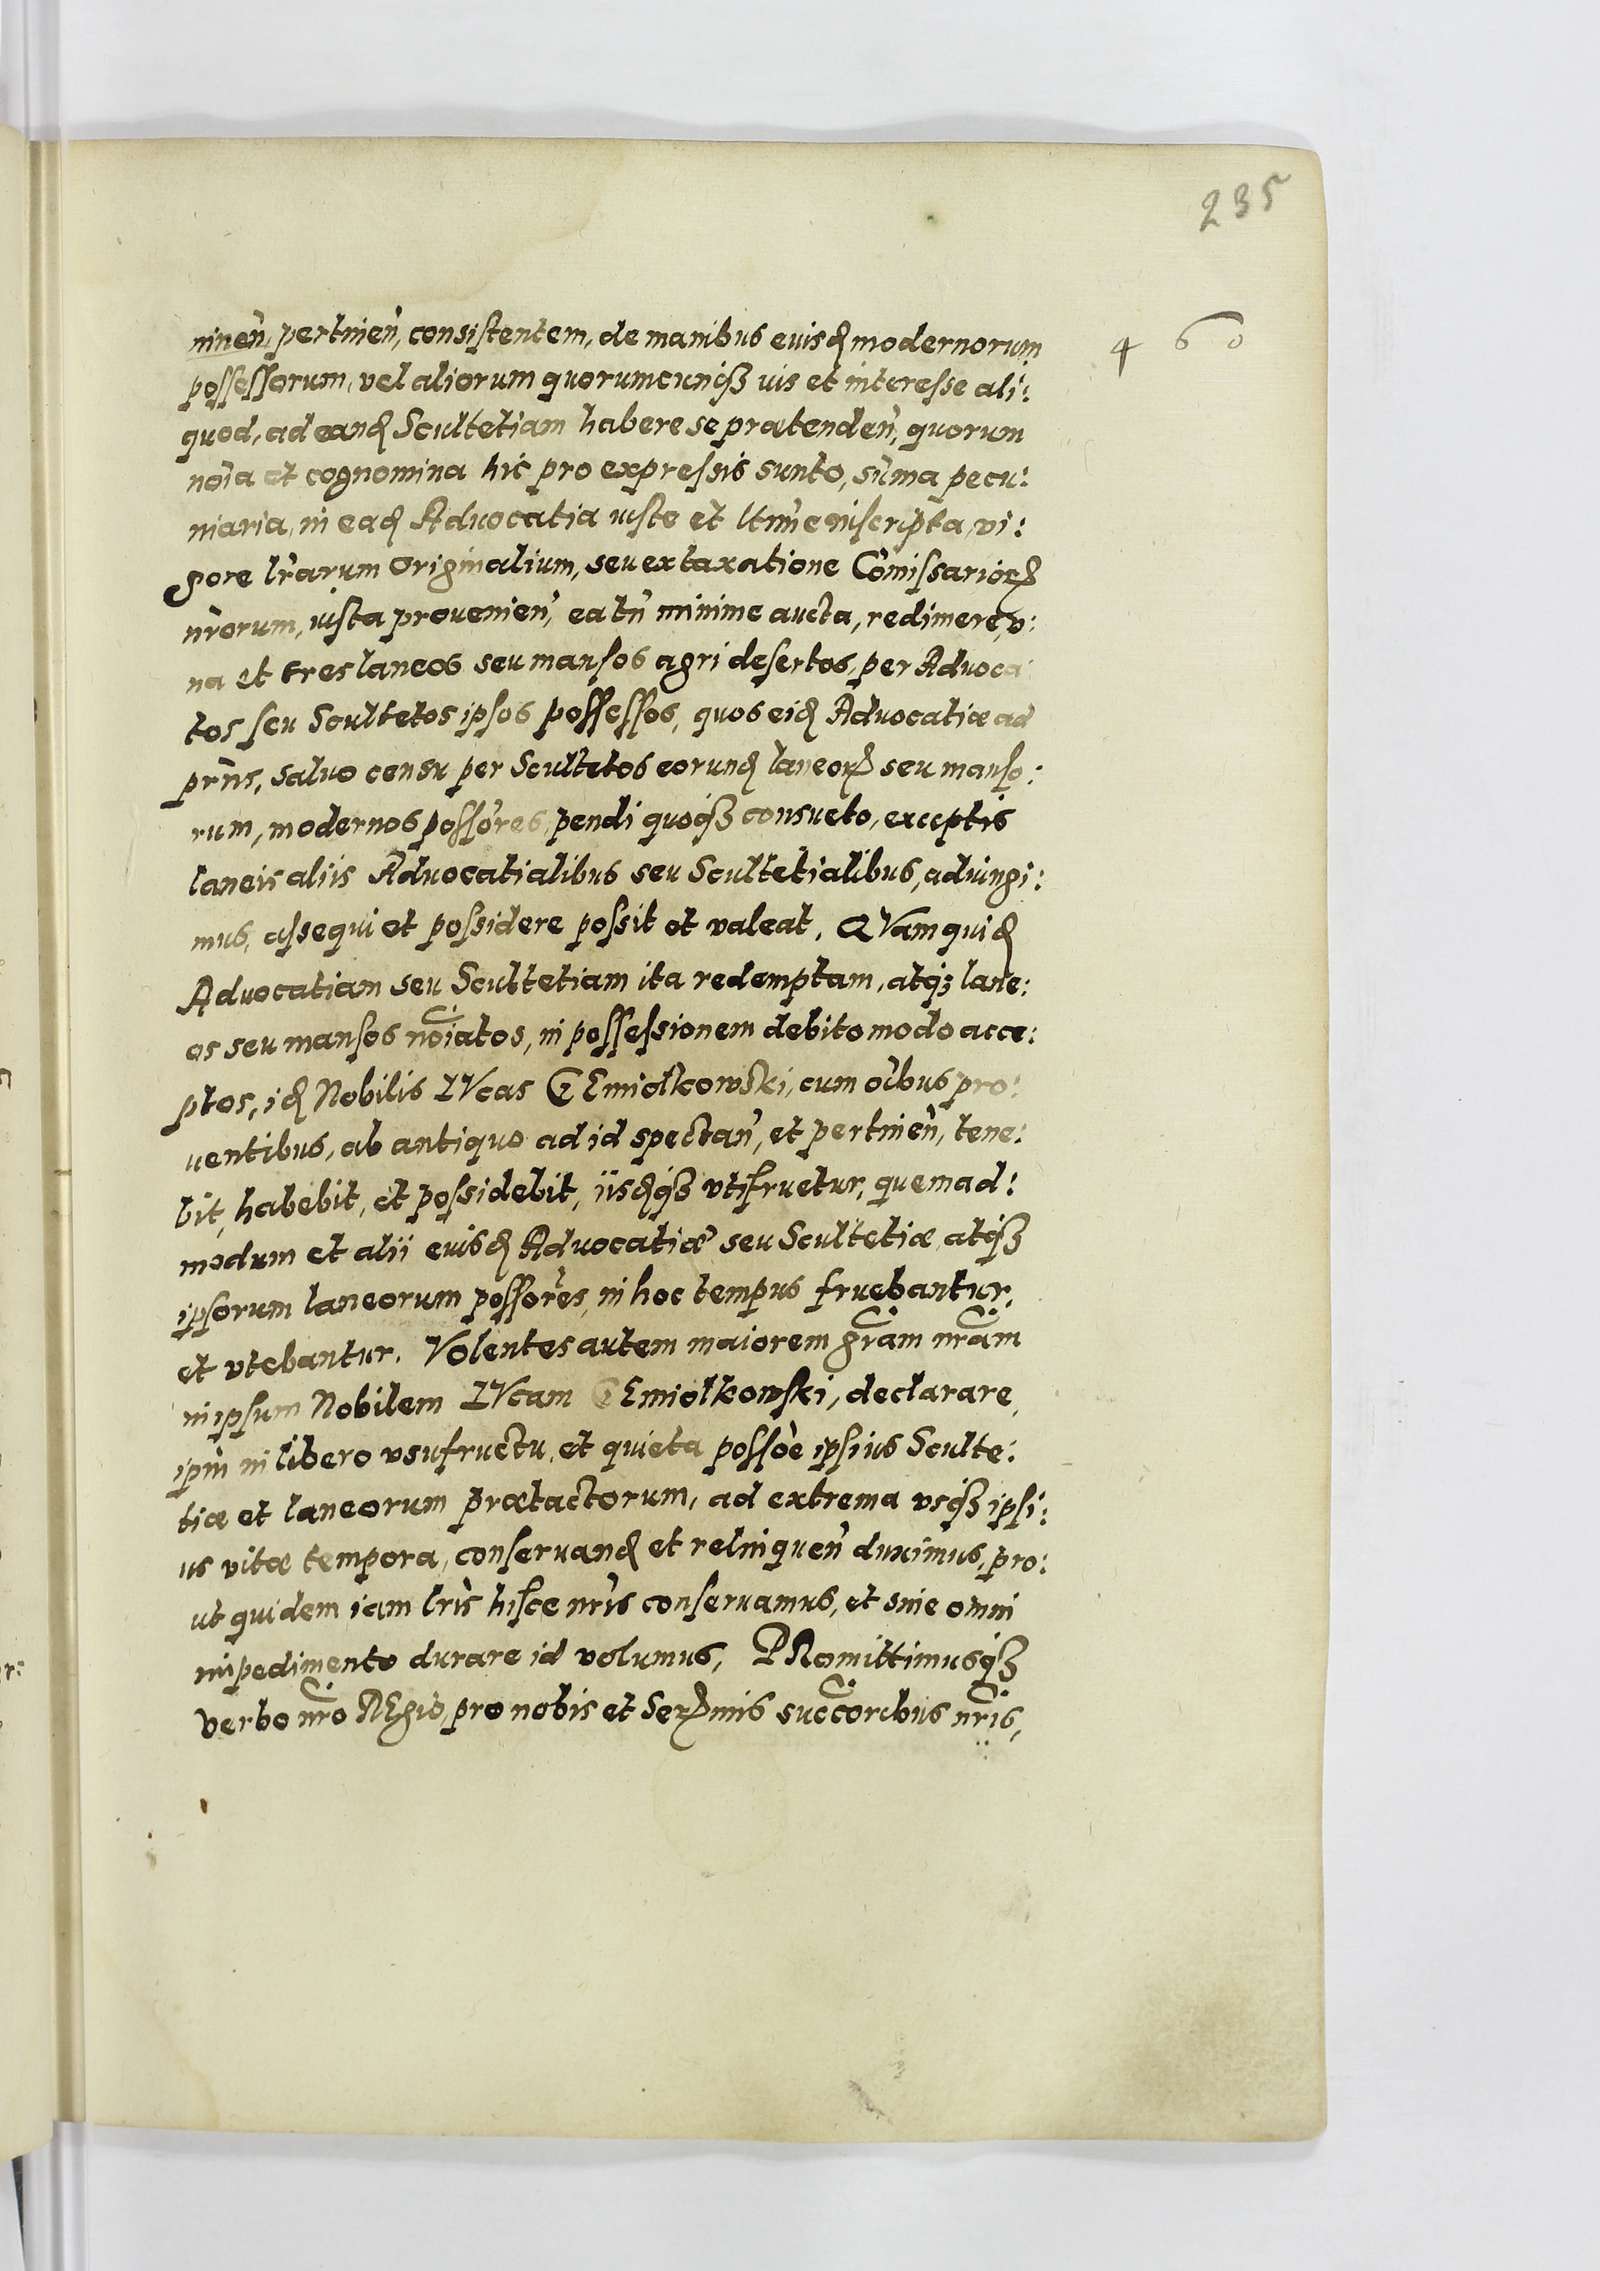 235
460
ninen̄, pertinen̄, consistentem, de manibus euisđ modernorum
possessorum, vel aliorum quorumcunq́ȝ uis et interesse ali:
quod, ad eanđ Scultetiam habere se prætenden̄, quorum
noĩa et cognomina hic pro expressis sunto, sum̃a pecu:
niaria, in eađ Aduocatia iuste et ltim̃e inscripta, vi:
gore lr̃arum Originalium, seu ex taxatione Com̃issarioꝝ
nr̃orum, iusta prouenien̄, ea tn̄ minime aucta, redimere, v:
na et tres laneos seu mansos agri desertos, per Aduoca
tos seu Scultetos ipsos possessos, quos eiđ Aduocatiæ ad
prñs, saluo censu per Scultetos eorunđ laneoꝝ seu manso:
rum, modernos possor̃es pendi quoq́ȝ consueto, exceptis
laneis aliis Aduocatialibus seu Scultetialibus, adiungi:
mus, assequi et possidere possit et valeat. QVam quiđ
Aduocatiam seu Scultetiam ita redemptam, atq́ȝ lane:
os seu mansos noĩatos, in possessionem debito modo acce:
ptos, iđ Nobilis LVcas GEmiolkowski, cum oĩbus pro:
uentibus, ab antiquo ad id spectan̄, et pertinen̄, tene:
bit, habebit, et possidebit, iisđq́ȝ vtifruetur, quemad:
modum et alii euisđ Aduocatiæ seu Scultetiæ atq́ȝ
ipsorum laneorum possor̃es, in hoc tempus fruebantur,
et vtebantur. Volentes autem maiorem gr̃am nr̃am
in ipsum Nobilem LVcam GEmiolkowski, declarare,
ipm̃ in libero vsufructu, et quieta possõe ipsius Sculte:
tiæ et laneorum prætactorum, ad extrema vsq́ȝ ipsi:
us vitæ tempora, conseruanđ et relinquen̄ duximus, pro:
ut quidem iam lr̃is hisce nr̃is conseruamus, et sine omni
impedimento durare id volumus, PRomittimusq́ȝ
verbo nr̃o REgio, pro nobis et Serꝝmis succ̃oribus nr̃is,